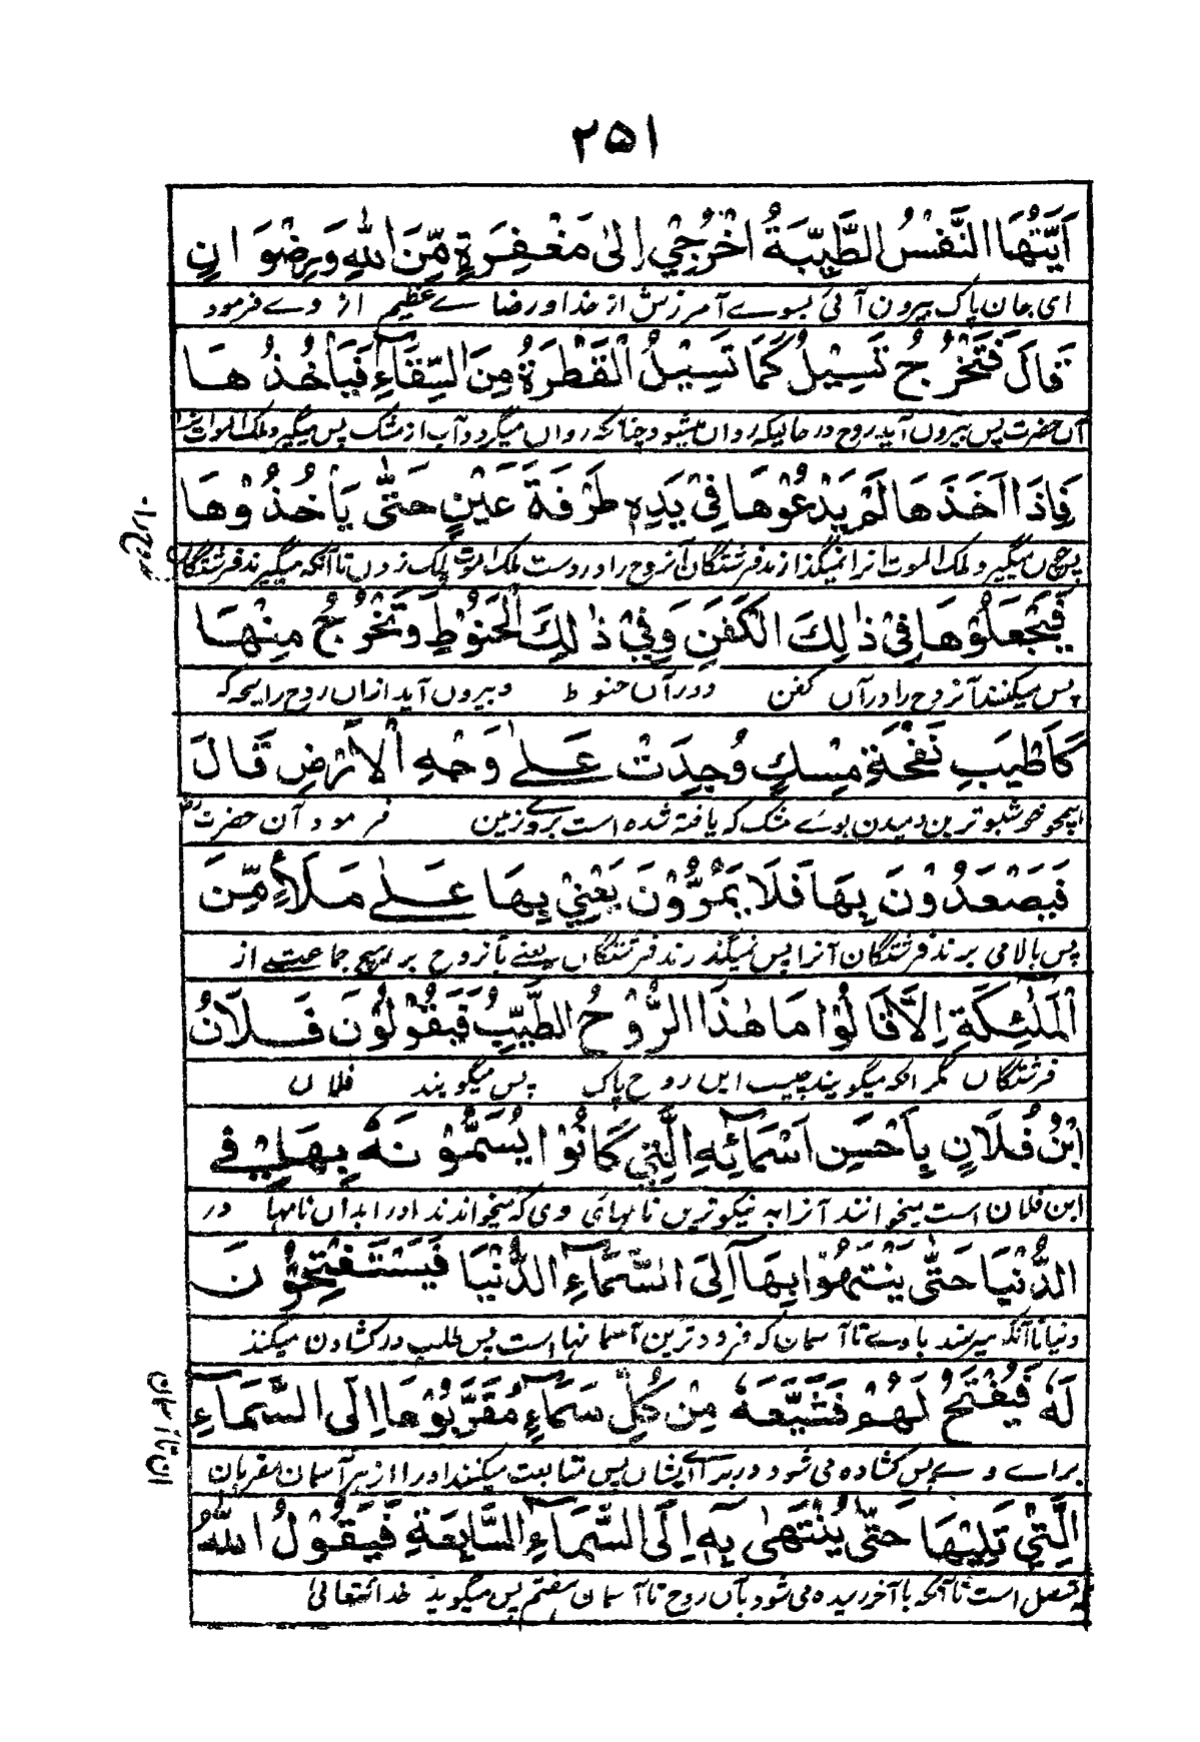 ۲۵۱
اَيَّتُهَا النَّفْسُ الطَّيِّبَةُ اخْرُجِيْ اِلىٰ مَغْفِرَةٍ مِّنَ اللهِ وَرِضْوَانٍ
ای جان پاک بیرون آئی بسوے آمرزش از خدا و رضا ے عظیم از وے فرمود
قَالَ فَتَخْرُجُ تَسِيْلُ كَمَا تَسِيْلُ الْقَطْرَةُ مِنَ السِّقَآءِ فَيَأْخُذُهَا
آن حضرت پس بیرون آید روح در حالیکه رواں میشود چنانکه رواں میگردد آب از مشک پس میگیرد ملک الموت
فَاِذَا اَخَذَهَا لَمْ يَدْعُوْهَا فِيْ يَدِهٖ طَرْفَةَ عَيْنٍ حَتّٰى يَأْخُذُوْهَا
پس چوں میگیرد ملک الموت آنرا نمیگذارند فرشتگان آنروح را در دست ملک الموت پلک زدن تا آنکه میگیرند فرشتگان
فَيَجْعَلُوْهَا فِيْ ذٰلِكَ الْكَفَنِ وَفِيْ ذٰلِكَ الْحَنُوْطِ وَتَخْرُجُ مِنْهَا
پس میکنند آنروح را در آں کفن و در آں حنوط و بیروں آید ازاں روح رایحه که
كَاَطْيَبِ نَفْحَةِ مِسْكٍ وُجِدَتْ عَلٰى وَجْهِ الْاَرْضِ قَالَ
ہمچو خوشبو ترین دمیدن بوئے مشک که یافته شده است بروے زمین فرمود آن حضرت
فَيَصْعَدُوْنَ بِهَا فَلَا يَمُرُّوْنَ يَعْنِيْ بِهَا عَلٰى مَلَأٍ مِّنَ
پس بالا می برند فرشتگان آنرا پس نمیگذرند فرشتگاں یعنے بآنروح بر ہیچ جماعتے از
الْمَلٰٓئِكَةِ اِلَّا قَالُوْا مَا هٰذَا الرُّوْحُ الطَّيِّبُ فَيَقُوْلُوْنَ فَلَانُ
فرشتگاں مگر انکه میگویند چیست ایں روح پاک پس میگویند فلاں
ابْنُ فُلَانٍ بِاَحْسَنِ اَسْمَآئِهِ الَّتِيْ كَانُوْا يُسَمُّوْنَهٗ بِهَا فِي
ابن فلان است میخوانند آنرا به نیکوترین نامہای وی که میخواندند اورا بداں نامها در
الدُّنْيَا حَتّٰى يَنْتَهُوْا بِهَا اِلَى السَّمَآءِ الدُّنْيَا فَيَسْتَفْتِحُوْنَ
دنیا تا آنکه میرسند باوے تا آسمان که فرودترین آسمانها است پس طلب در کشادن میکنند
لَهٗ فَيُفْتَحُ لَهُمْ فَتُشَيِّعُهٗ مِنْ كُلِّ سَمَآءٍ مُّقَرَّبُوْهَا اِلَى السَّمَآءِ
براے وے پس کشاده می شود در براے ایشاں پس متابعت میکنند اورا از ہر آسمان مقربان
الَّتِيْ تَلِيْهَا حَتّٰى يُنْتَهٰى بِهٖ اِلَى السَّمَآءِ السَّابِعَةِ فَيَقُوْلُ اللهُ
متصل است تا آنکه باآخر رسیده می شود بآں روح تا آسمان ہفتم پس میگوید خدائتعالیٰ